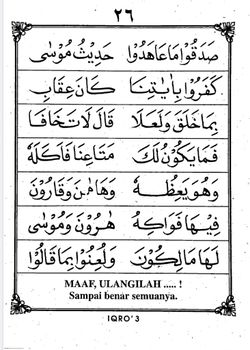 ٢٦
صَدَقُوْا مَا عَاهَدُوْا حَدِيْثُ مُوْسٰى
كَفَرُوْا بِاٰيٰتِنَا كَانَ عِقَابِ
بِمَا خَلَقَ وَلَعَلَا قَالَ لَا تَخَافَا
فَمَا يَكُوْنُ لَكَ مَتَاعِنَا فَاَكَلَهُ
وَهُوَ يَعِظُهُ وَهَامٰنَ وَقَارُوْنَ
فِيْهَا فَوَاكِهُ هٰرُوْنَ وَمُوْسٰى
لَهَا مَالِكُوْنَ وَلُعِنُوْا بِمَا قَالُوْا
MAAF, ULANGILAH ..... !
Sampai benar semuanya.
IQRO' 3